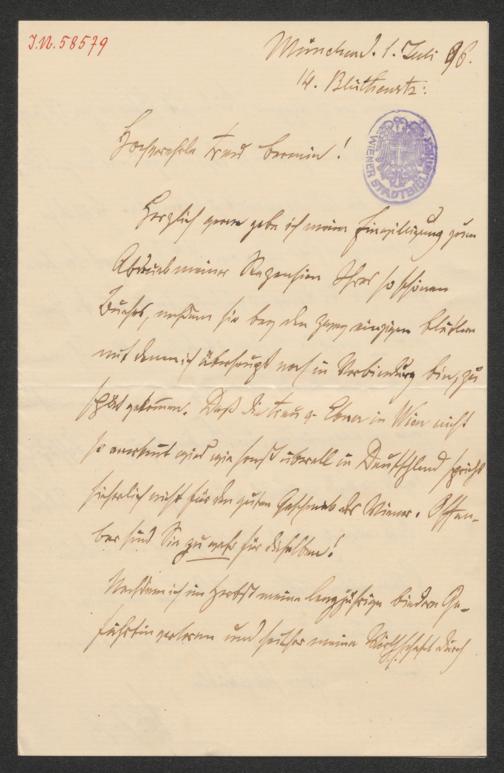 J.N. 58579
München d. 1. Juli 96.
14. Blüthenstr:
WIENER STADTBIBLIOTHEK
Hochverehrte Frau Baronin!
Herzlich gerne gebe ich meine Einwilligung zum
Abdruck meiner Rezension Ihres so schönen
Buches, nachdem sie bey den zwey einzigen Blättern
mit denen ich überhaupt noch in Verbindung bin, zu
spät gekommen. Daß die Frau v. Ebner in Wien nicht
so anerkannt wird wie sonst überall in Deutschland spricht
sicherlich nicht für den guten Geschmack der Wiener. Offen-
bar sind Sie zu wahr für dieselben!
Nachdem ich im Herbst meine langjährige Ge-
fährtin verloren und seither meine durch